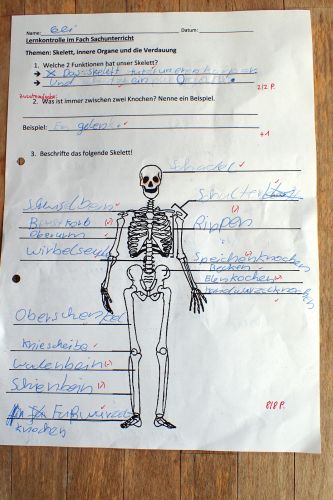 Name: Datum:
Lernkontrolle im Fach Sachunterricht
Themen: Skelett, innere Organe und die Verdauung
1. Welche 2 Funktionen hat unser Skelett?
Das Skelett
Und
2/2 P.
Zusatzaufgabe:
2. Was ist immer zwischen zwei Knochen? Nenne ein Beispiel.
Beispiel: Ein gelenk.
+1
3. Beschrifte das folgende Skelett!
Schädel
Schlüsselbein
Schulter
Brustkorb
Rippen
Oberarm
Wirbelseule
Speichenknochen
Becken
Elenkochen
Handwurzelknochen
Oberschenkel
Kniescheibe
Wadenbein
Schienbein
Fußwurzel
knochen
8/8 P.